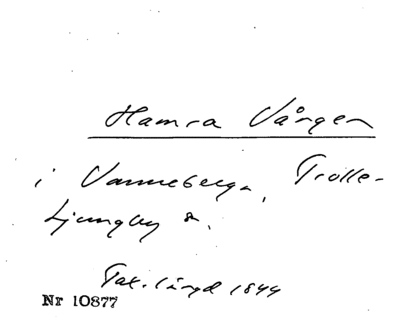 Hamra Vången
i Vanneberga, Trolle-
Ljungby s.
Tax.längd 1844
Nr 10877